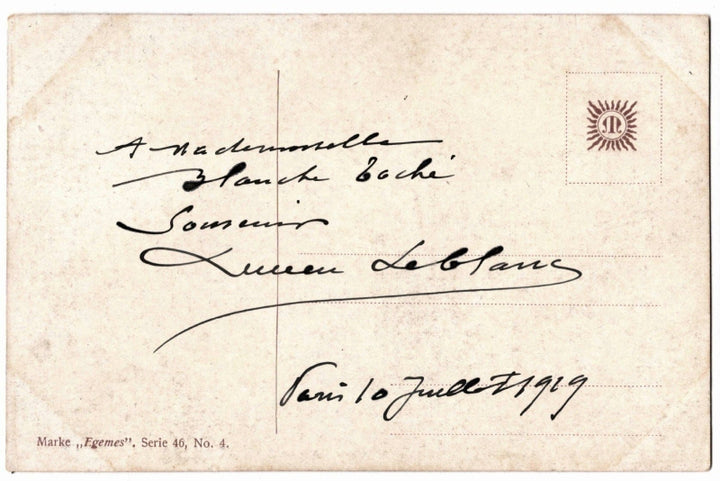 A Mademoiselle
Blanche Taché
Souvenir
Lucien Leblanc
Paris 10 Juillet 1919
Marke „Egemes". Serie 46, No. 4.
M